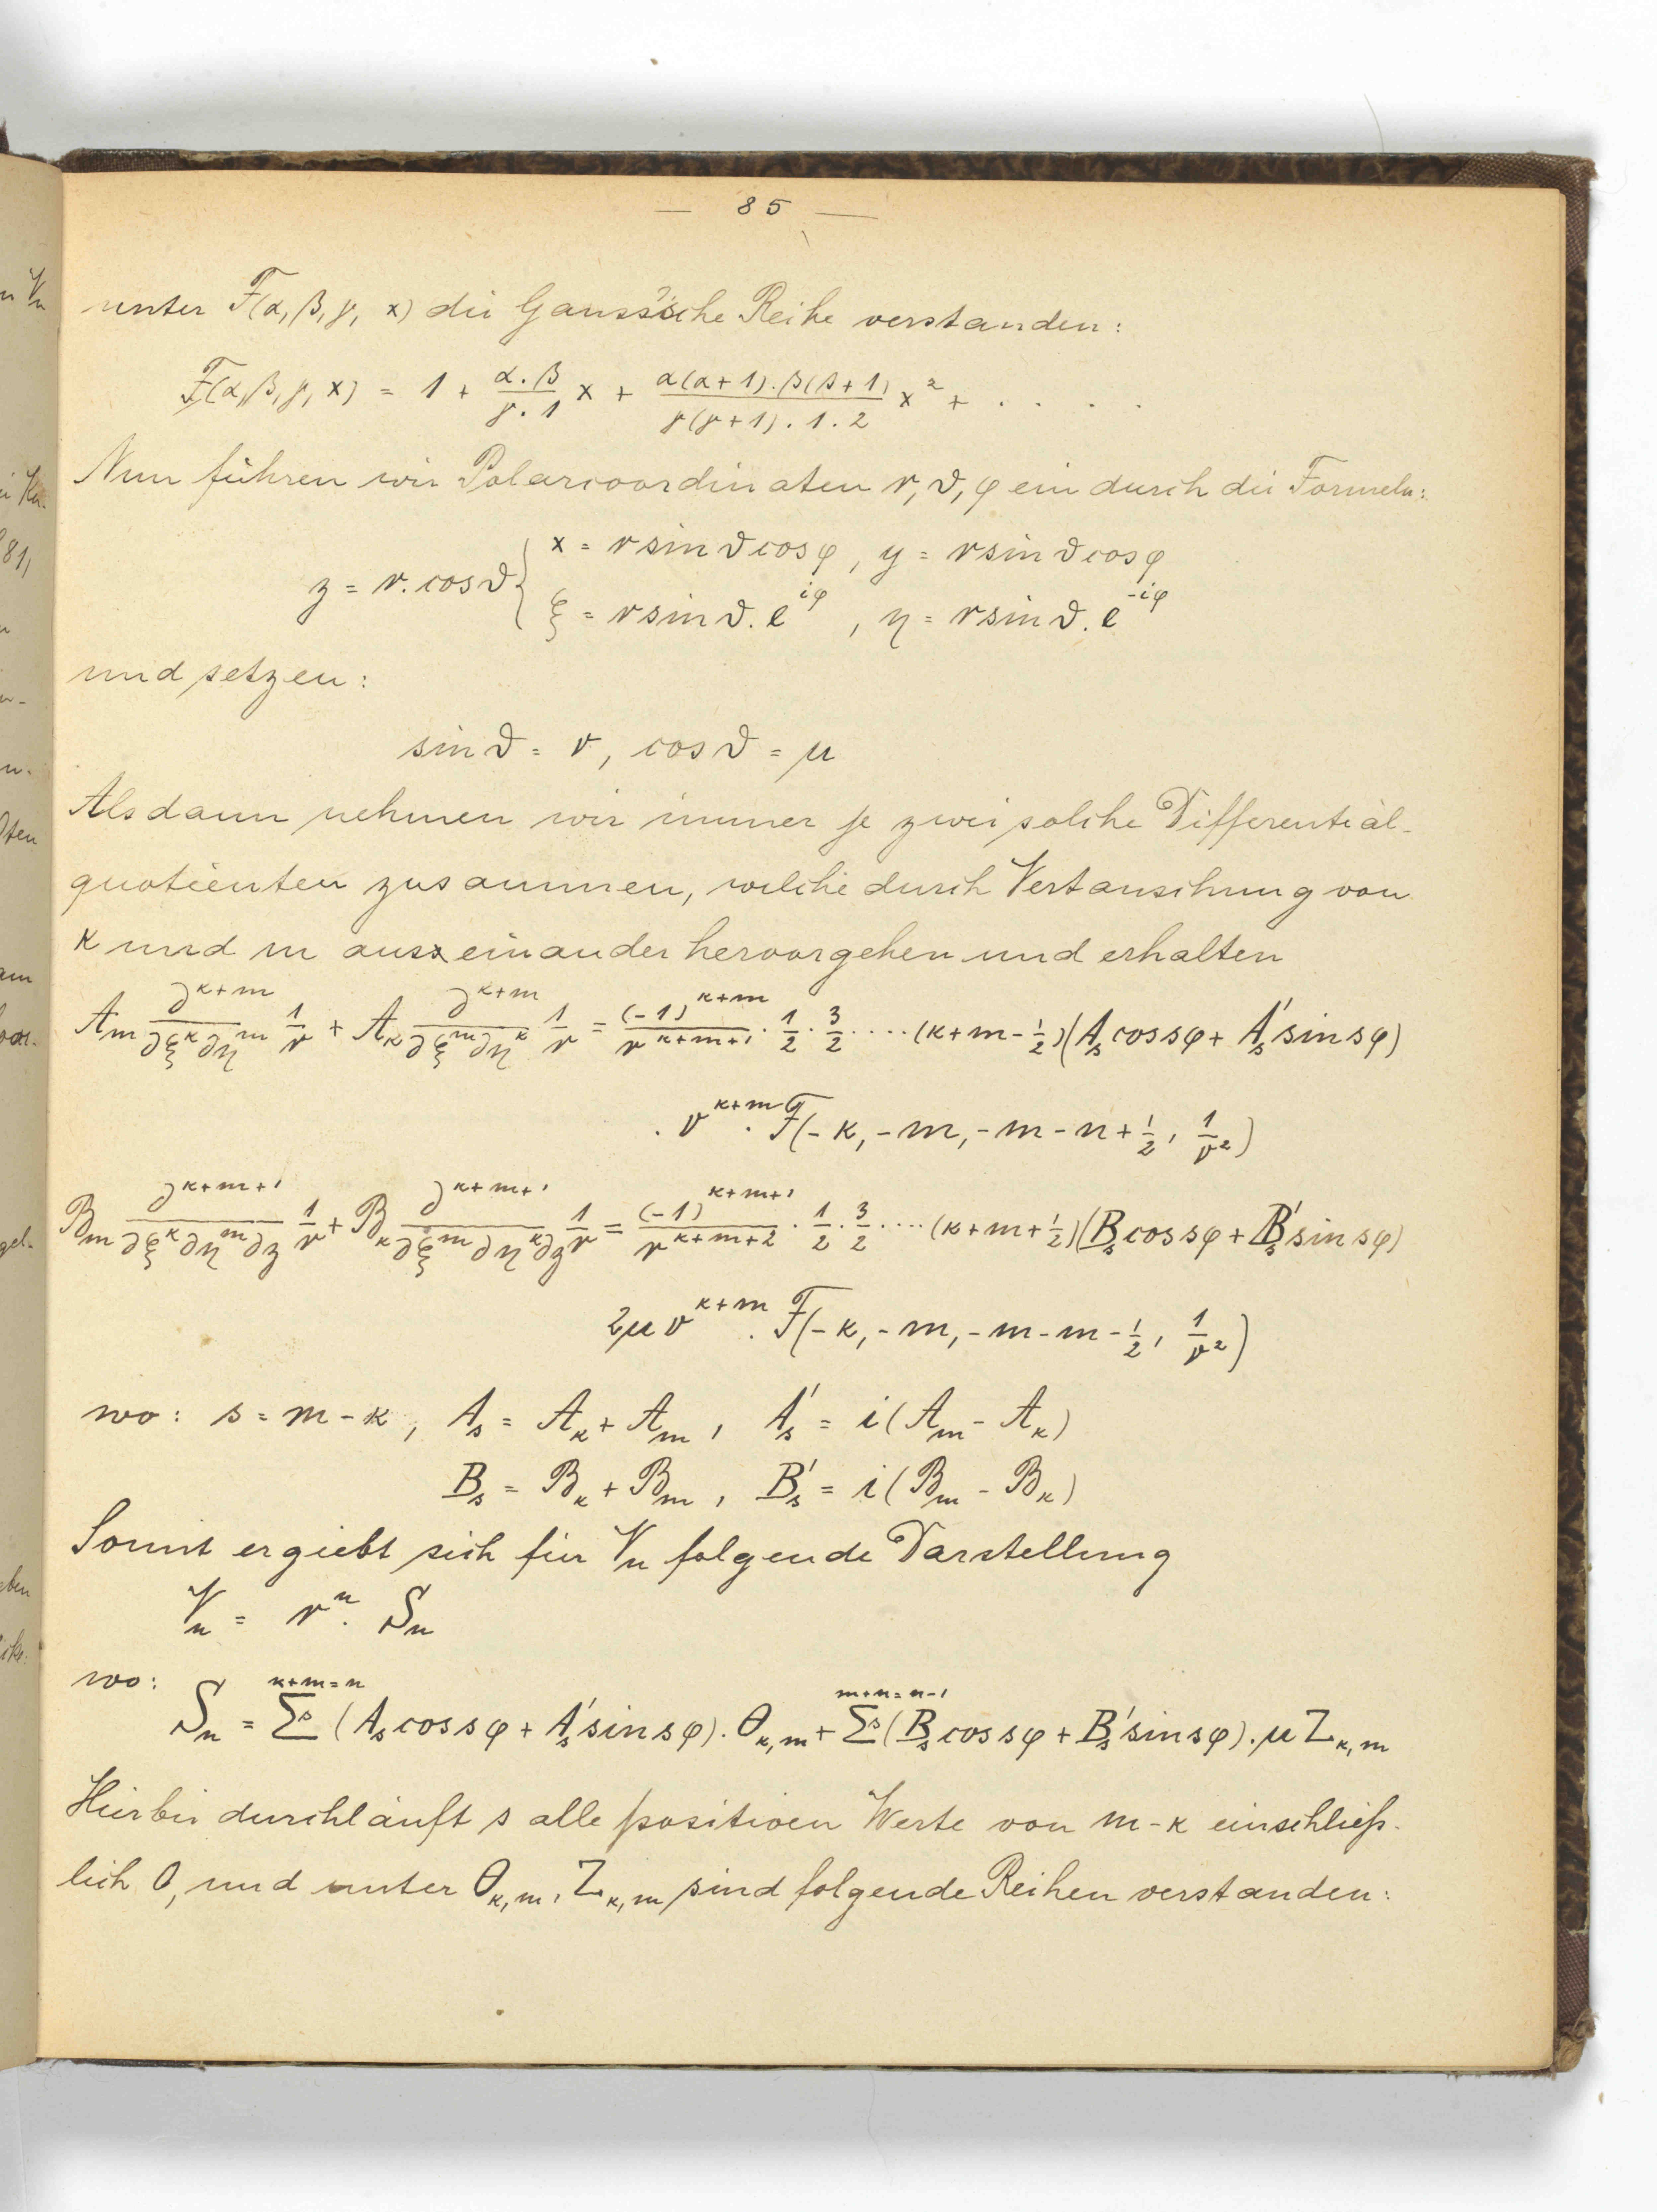 — 85 —
unter F(α, β, γ, x) die Gauss'sche Reihe verstanden:
F(α, β, γ, x) = 1 + \frac{α.β}{γ.1} x + \frac{α(α+1).β(β+1)}{γ(γ+1).1.2} x² + . . . .
Nun führen wir Polarcoordinaten r, ϑ, φ ein durch die Formeln:
x = r sin ϑ cos φ, y = r sin ϑ cos φ
z = r. cos ϑ {
ξ = r sin ϑ. e^{iφ}, η = r sin ϑ. e^{-iφ}
und setzen:
sin ϑ = ν, cos ϑ = μ
Alsdann nehmen wir immer je zwei solche Differential-
quotienten zusammen, welche durch Vertauschung von
κ und m auseinander hervorgehen und erhalten
A_m \frac{∂^{κ+m}}{∂ξ^κ ∂η^m} \frac{1}{r} + A_κ \frac{∂^{κ+m}}{∂ξ^m ∂η^κ} \frac{1}{r} = \frac{(-1)^{κ+m}}{r^{κ+m+1}} . \frac{1}{2} . \frac{3}{2} .... (κ+m-\frac{1}{2})(A_s cos sφ + A'_s sin sφ)
. ν^{κ+m} . F(-κ, -m, -m-n+\frac{1}{2}, \frac{1}{ν²})
B_m \frac{∂^{κ+m+1}}{∂ξ^κ ∂η^m ∂z} \frac{1}{r} + B_κ \frac{∂^{κ+m+1}}{∂ξ^m ∂η^κ ∂z} \frac{1}{r} = \frac{(-1)^{κ+m+1}}{r^{κ+m+2}} . \frac{1}{2} . \frac{3}{2} .... (κ+m+\frac{1}{2})(B_s cos sφ + B'_s sin sφ)
2μν^{κ+m} . F(-κ, -m, -m-m-\frac{1}{2}, \frac{1}{ν²})
wo: s = m-κ, A_s = A_κ + A_m, A'_s = i(A_m - A_κ)
B_s = B_κ + B_m, B'_s = i(B_m - B_κ)
Somit ergiebt sich für V_n folgende Darstellung
V_n = r^n. S_n
wo:
S_n = \sum_s^{κ+m=n} (A_s cos sφ + A'_s sin sφ). Θ_{κ,m} + \sum_s^{m+κ=n-1} (B_s cos sφ + B'_s sin sφ). μ Z_{κ,m}
Hierbei durchläuft s alle positiven Werte von m-κ einschließ-
lich 0, und unter Θ_{κ,m}, Z_{κ,m} sind folgende Reihen verstanden: